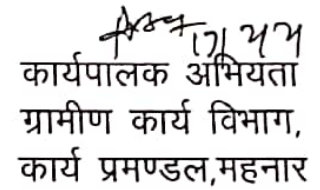 कार्यपालक अभियता
ग्रामीण कार्य विभाग,
कार्य प्रमण्डल,महनार